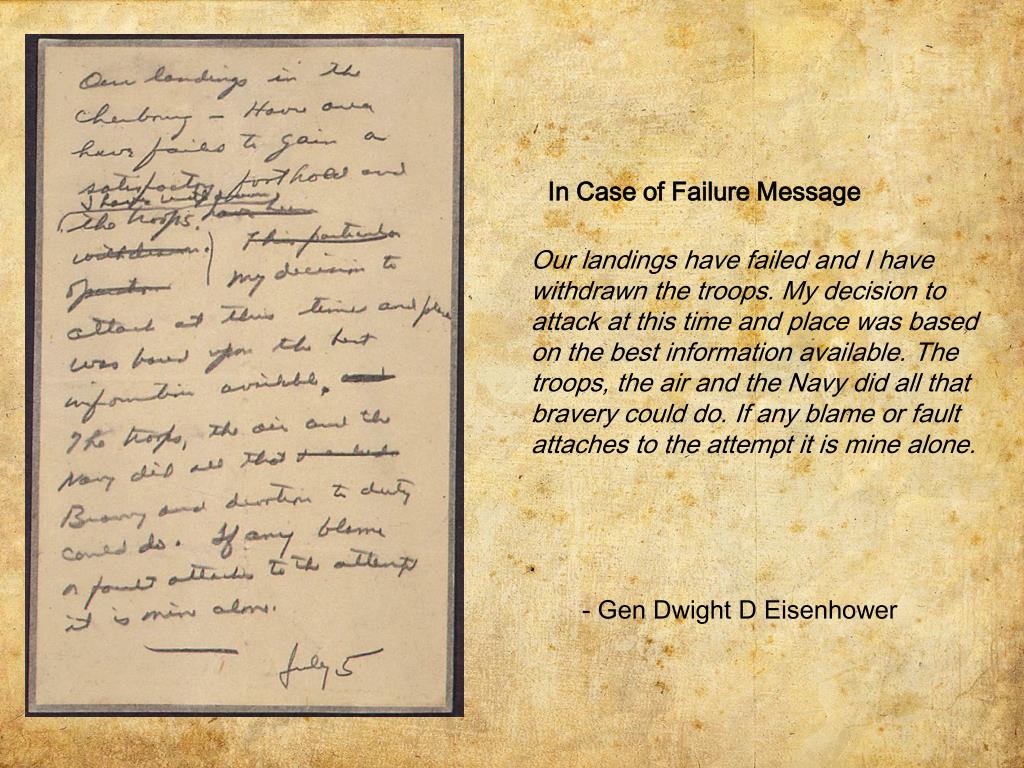 Our landings in the
Cherbourg - Havre area
have failed to gain a
satisfactory foothold and
I have withdrawn
the troops. have been
withdrawn. This particular
operation My decision to
attack at this time and place
was based upon the best
information available, and
The troops, the air and the
Navy did all that
Bravery and devotion to duty
could do. If any blame
or fault attaches to the attempt
it is mine alone.
July 5
In Case of Failure Message
Our landings have failed and I have
withdrawn the troops. My decision to
attack at this time and place was based
on the best information available. The
troops, the air and the Navy did all that
bravery could do. If any blame or fault
attaches to the attempt it is mine alone.
- Gen Dwight D Eisenhower